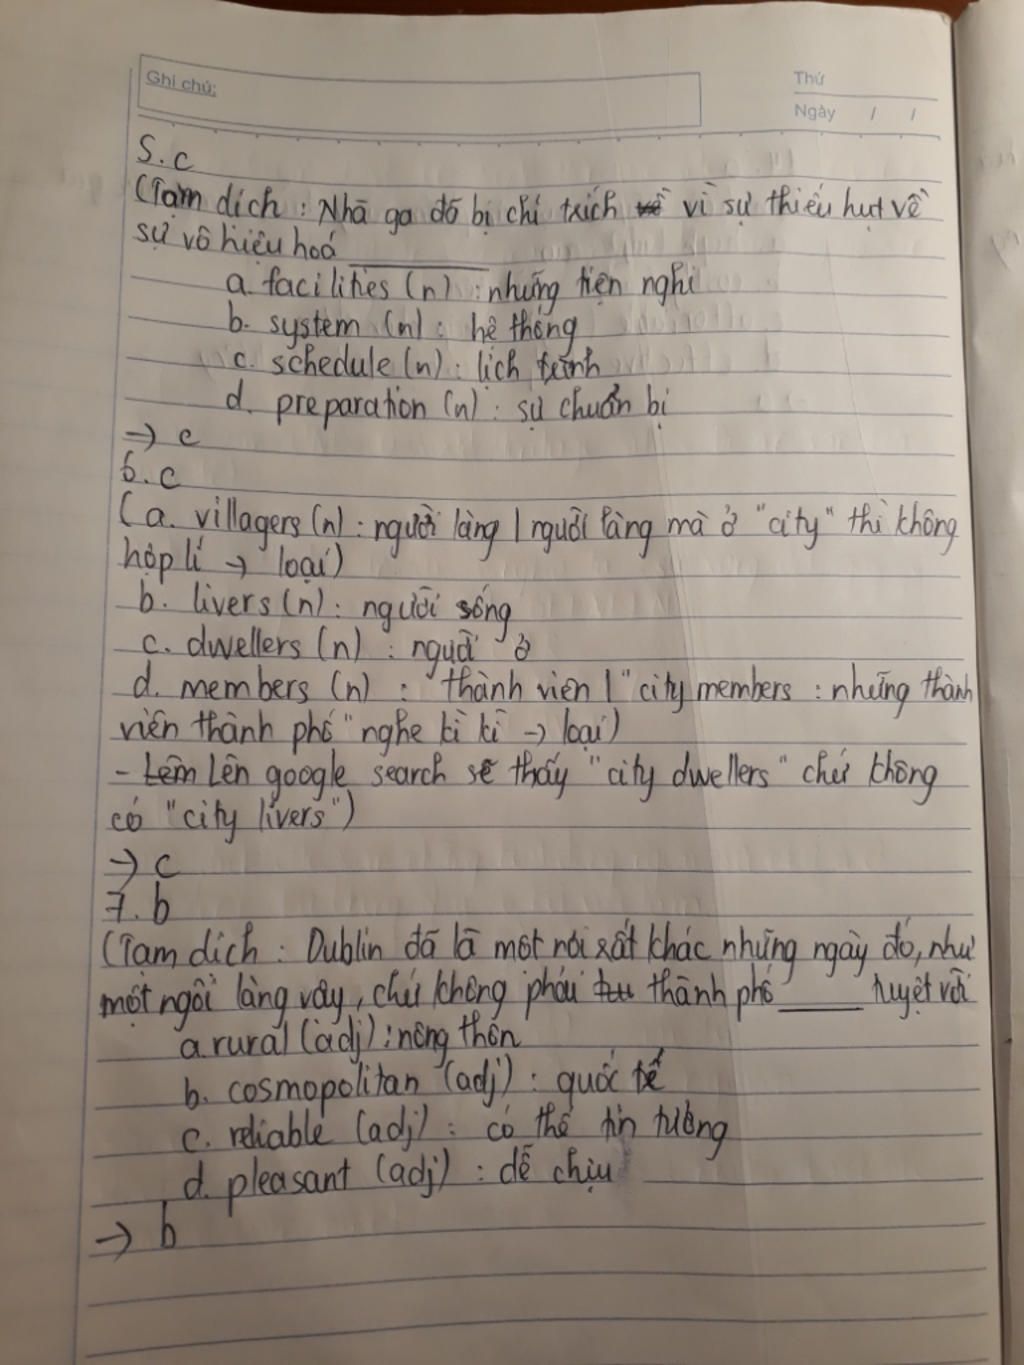 Ghi chú:
Thứ
Ngày / /
5. c
(Tạm dịch : Nhà ga đó bị chỉ trích về vì sự thiếu hụt về
sự vô hiệu hoá ________
a. facilities (n) : những tiện nghi
b. system (n) : hệ thống
c. schedule (n) : lịch trình
d. preparation (n) : sự chuẩn bị
→ c
6. c
(a. villagers (n) : người làng | người làng mà ở "city" thì không
hợp lí → loại)
b. livers (n) : người sống
c. dwellers (n) : người ở
d. members (n) : thành viên | "city members : những thành
viên thành phố" nghe kì kì → loại)
- Lên google search sẽ thấy "city dwellers" chứ không
có "city livers")
→ c
7. b
(Tạm dịch : Dublin đã là một nơi rất khác những ngày đó, như
một ngôi làng vậy, chứ không phải thành phố ______ tuyệt vời
a. rural (adj) : nông thôn
b. cosmopolitan (adj) : quốc tế
c. reliable (adj) : có thể tin tưởng
d. pleasant (adj) : dễ chịu
→ b